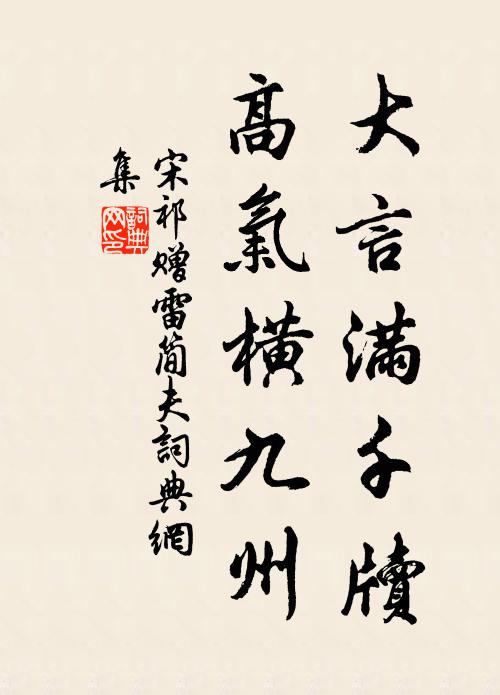 大言滿千牘
高氣橫九州
宋祁贈雷簡夫詞典網
集
詞典
网印